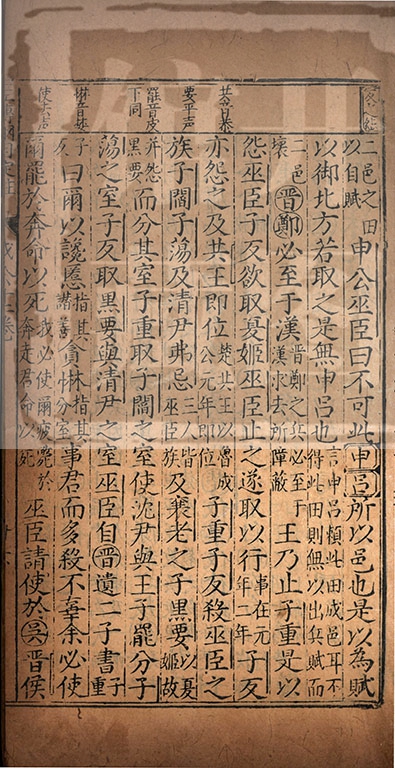 二邑之田以自賦申公巫臣曰不可此申呂所以邑也是以為賦
以御北方若取之是無申呂也言申呂賴此田成邑耳不得此田則無以出兵賦而
二邑壞晉鄭必至于漢晉鄭之兵必至于漢求去所障蔽王乃止子重是以
怨巫臣子反欲取夏姬巫臣止之遂取以行事在元年二年子反
共音恭
亦怨之及共王即位楚共王以魯成公元年即位子重子反殺巫臣之
要平声
族子閻子蕩及清尹弗忌三人皆巫臣族及襄老之子黑要以夏姬故
罷音皮下同
并怨黑要而分其室子重取子閻之室使沈尹與王子罷分子
蕩之室子反取黑要與清尹之室巫臣自晉遺二子書子重
惏音婪
子反曰爾以讒慝指其貪惏指其分室事君而多殺不辜余必使
使去声
爾罷於奔命以死我必使爾疲斃於奔走君命以死巫臣請使於吳晉侯